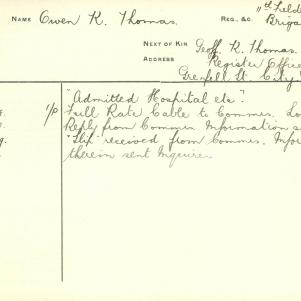 NAME Owen K. Thomas. REG., &C. 11th Field
Briga
NEXT OF KIN Geoff. K. Thomas.
ADDRESS Register Office
Grenfell St. City
"Admitted Hospital etc".
1/p Full Rate Cable to Commiss. Lo
Reply from Commiss Information a
"Slip" received from Commiss. Infor
therein sent Inquirer